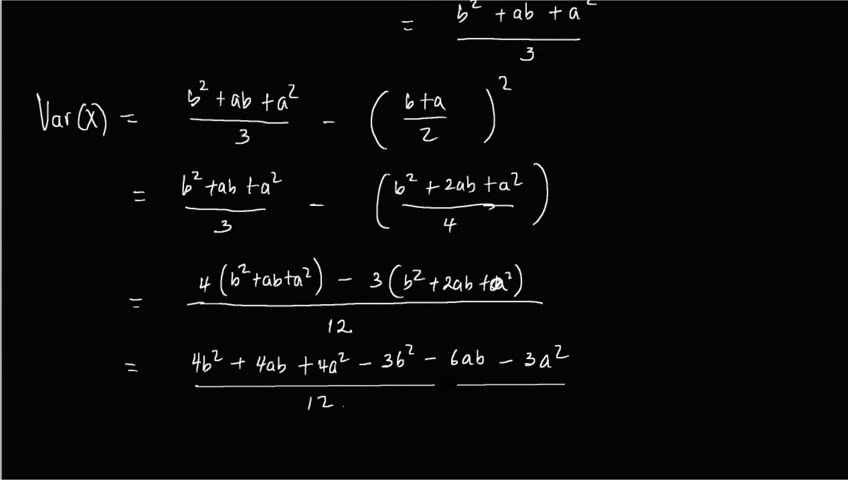 = b² + ab + a² / 3
Var(X) = b² + ab + a² / 3 - ( b+a / 2 )²
= b² + ab + a² / 3 - ( b² + 2ab + a² / 4 )
= 4(b² + ab + a²) - 3(b² + 2ab + a²) / 12
= 4b² + 4ab + 4a² - 3b² - 6ab - 3a² / 12